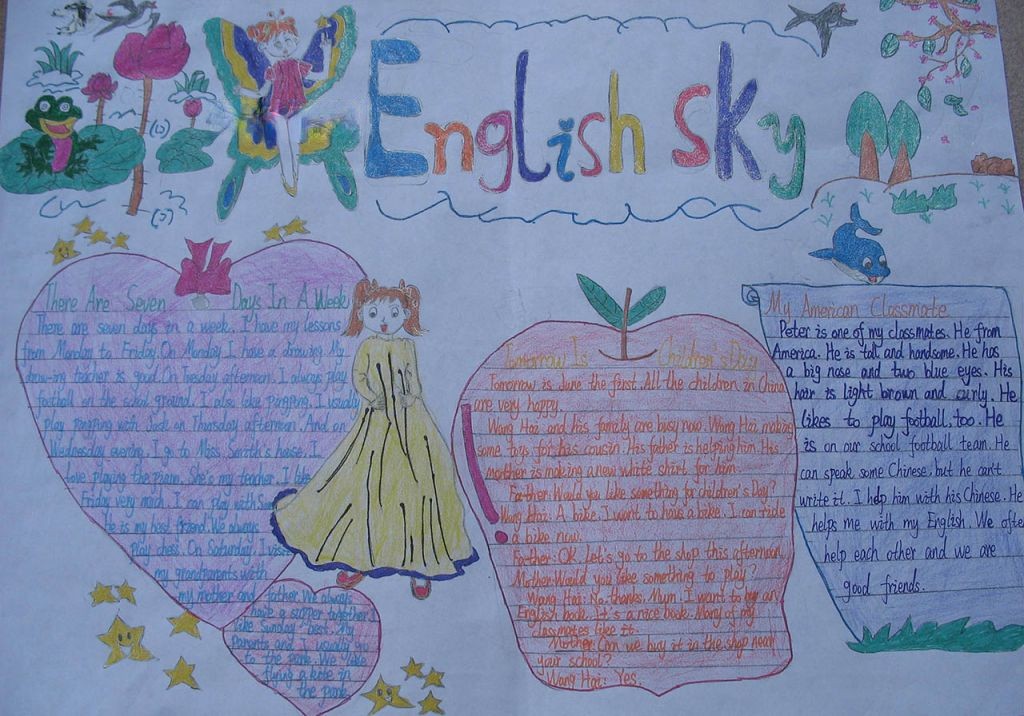 English sky
There Are Seven Days In A Week
There are seven days in a week. I have my lessons
from Monday to Friday. On Monday I have a drawing. My
drawing teacher is good. On Tuesday afternoon. I always play
football on the school ground. I also like pingping. I usually
play pingping with Jack on Thursday afternoon. And on
Wednesday evening. I go to Miss Smith's house. I
love playing the piano. She's my teacher. I like
Friday very much. I can play with Sam
he is my best friend. We always
play chess. On Saturday. I visit
my grandparents with
my mother and father. We always
have a supper together. I
like Sunday best. My
Parents and I usually go
to the park. We like
flying a kite in
the park.
Tomorrow Is Children's Day
Tomorrow is June the first. All the children in China
are very happy.
Wang Hai and his family are busy now. Wang Hai making
some toys for his cousin. His father is helping him. His
mother is making a new white shirt for him.
Father: Would you like something for children's Day?
Wang Hai: A bake. I want to have a bake. I can ride
a bike now.
Father: OK. Let's go to the shop this afternoon.
Mother: Would you like something to play?
Wang Hai: No. thanks. Mum. I want to buy an
English book. It's a nice book. Many of my
classmates like it.
Mother: Can we buy it in the shop near
your school?
Wang Hai: Yes.
My American Classmate
Peter is one of my classmates. He from
America. He is tall and handsome. He has
a big nose and two blue eyes. His
hair is light brown and curly. He
likes to play football, too. He
is on our school football team. He
can speak some Chinese. but he can't
write it. I help him with his Chinese. He
helps me with my English. We ofte
help each other and we are
good friends.